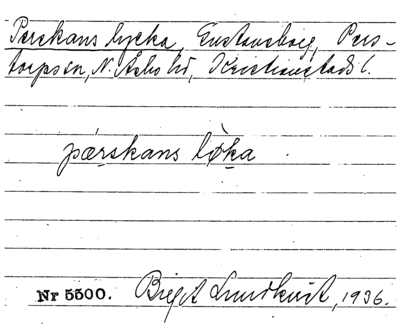 Perskans lycka, Gustavsborg, Pers-
torps sn, N. Åsbo hd, Kristianstads l.
pærskans lỳka
Nr 5500. Birgit Lundkvist, 1936.